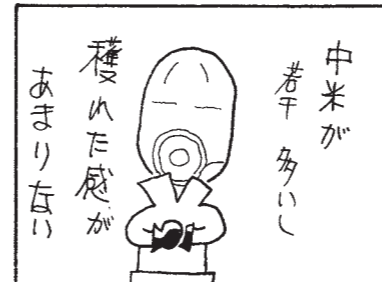 中米が
若干 多いし
穫れた感が
あまりない